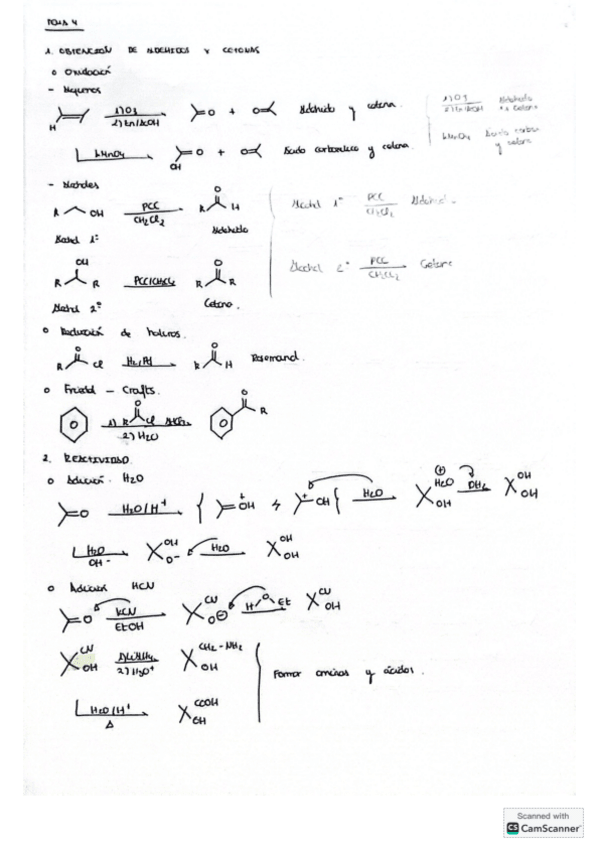 TEMA 4
1. OBTENCIÓN DE ALDEHIDOS Y CETONAS
o Oxidación
- Alquenos
H 1) O3 2) Zn/AcOH =O + O= Aldehido y cetona.
1) O3 2) Zn/AcOH Aldehido
KMnO4 =O OH + O= Ácido carboxílico y cetona
KMnO4 Ácido carbox y cetona
- Alcoholes
R OH PCC CH2Cl2 O R H
Alcohol 1º Aldehido
Alcohol 1º PCC CH2Cl2
OH R R PCC/CH2Cl2 O R R
Alcohol 2º Cetona.
Alcohol 2º PCC CH2Cl2 Cetona
o Reducción de haluros.
O R Cl H2/Pd O R H Rosenmund.
o Friedel - Crafts.
1) R O Cl AlCl3 2) H2O O R
2. REACTIVIDAD
o Adición H2O
=O H2O/H+ { =OH ↔ + OH } H2O H2O OH OH OH
H2O OH- OH O- H2O OH OH
o Adición HCN
=O KCN EtOH CN O⊖ H O Et CN OH
CN OH 1) LiAlH4 2) H3O+ CH2-NH2 OH
Formar aminas y ácidos.
H2O/H+ Δ COOH OH
Scanned with
CS CamScanner